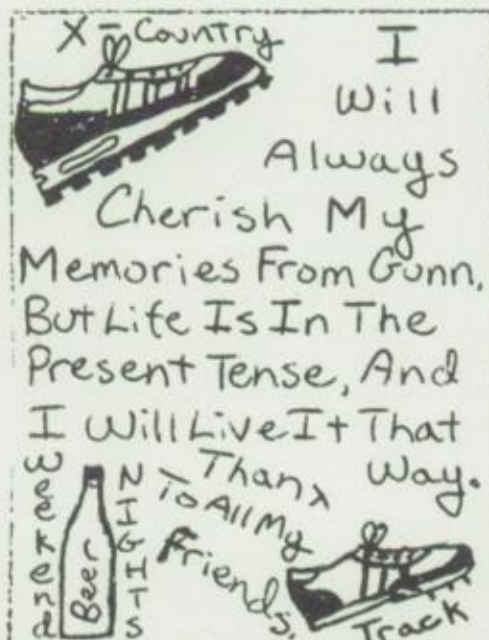 X-Country
I
Will
Always
Cherish My
Memories From Gunn,
But Life Is In The
Present Tense, And
I Will Live It That
Way.
Weekend
Beer
NIGHTS
Thanx
To All My
Friends.
Track